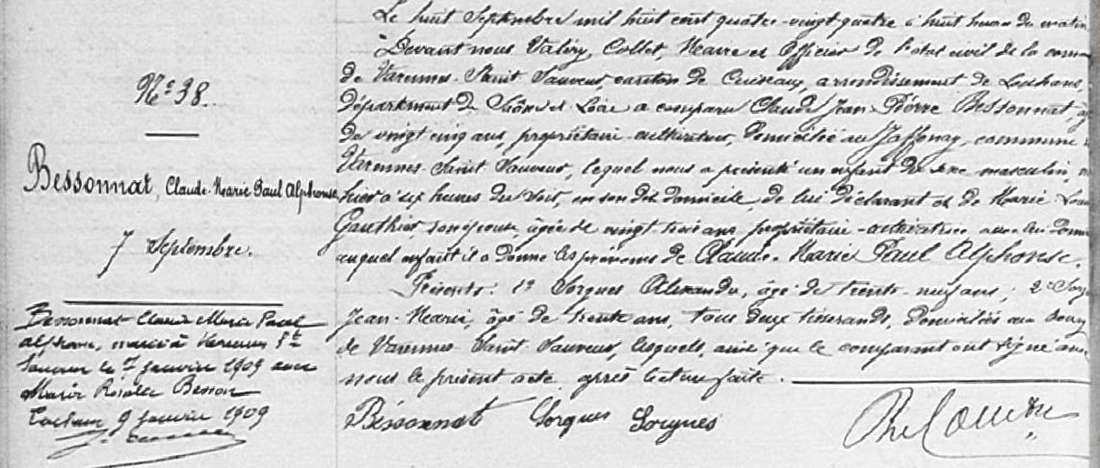 N° 38.
Bessonnat, Claude Marie Paul Alphonse
7 Septembre.
Bessonnat Claude Marie Paul
Alphonse, marié à Varennes St
Sauveur le janvier 1909 avec
Marie Rosalie Besson
9 janvier 1909
Le huit Septembre mil huit cent quatre-vingt quatre à huit heures du matin
Devant nous Valéry, Collet, Maire et Officier de l'état civil de la comm
de Varennes-Saint-Sauveur, canton de Cuiseaux, arrondissement de Louhans,
département de Saône et Loire a comparu Claude Jean Pierre Bessonnat, âgé
de vingt cinq ans, propriétaire cultivateur, domicilié au Jaffonay, commune
Varennes Saint Sauveur, lequel nous a présenté un enfant de sexe masculin, né
hier à six heures du soir, en son dit domicile, de lui déclarant et de Marie
Gauthier, son épouse, âgée de vingt trois ans propriétaire-cultivatrice avec lui
auquel enfant il a donné les prénoms de Claude-Marie Paul Alphonse.
Présents: 1° Sorgues Alexandre, âgé de trente-neuf ans; 2°
Jean-Marie, âgé de trente ans, tous deux tisserands, domiciliés au bourg
de Varennes-Saint-Sauveur, lesquels, ainsi que le comparant ont signé avec
nous le présent acte, après lecture faite.
Bessonnat Sorgues Sorgues